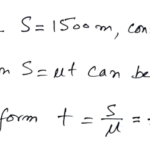 S = 1500 m, con
n S = ut can be
form t = S/u =